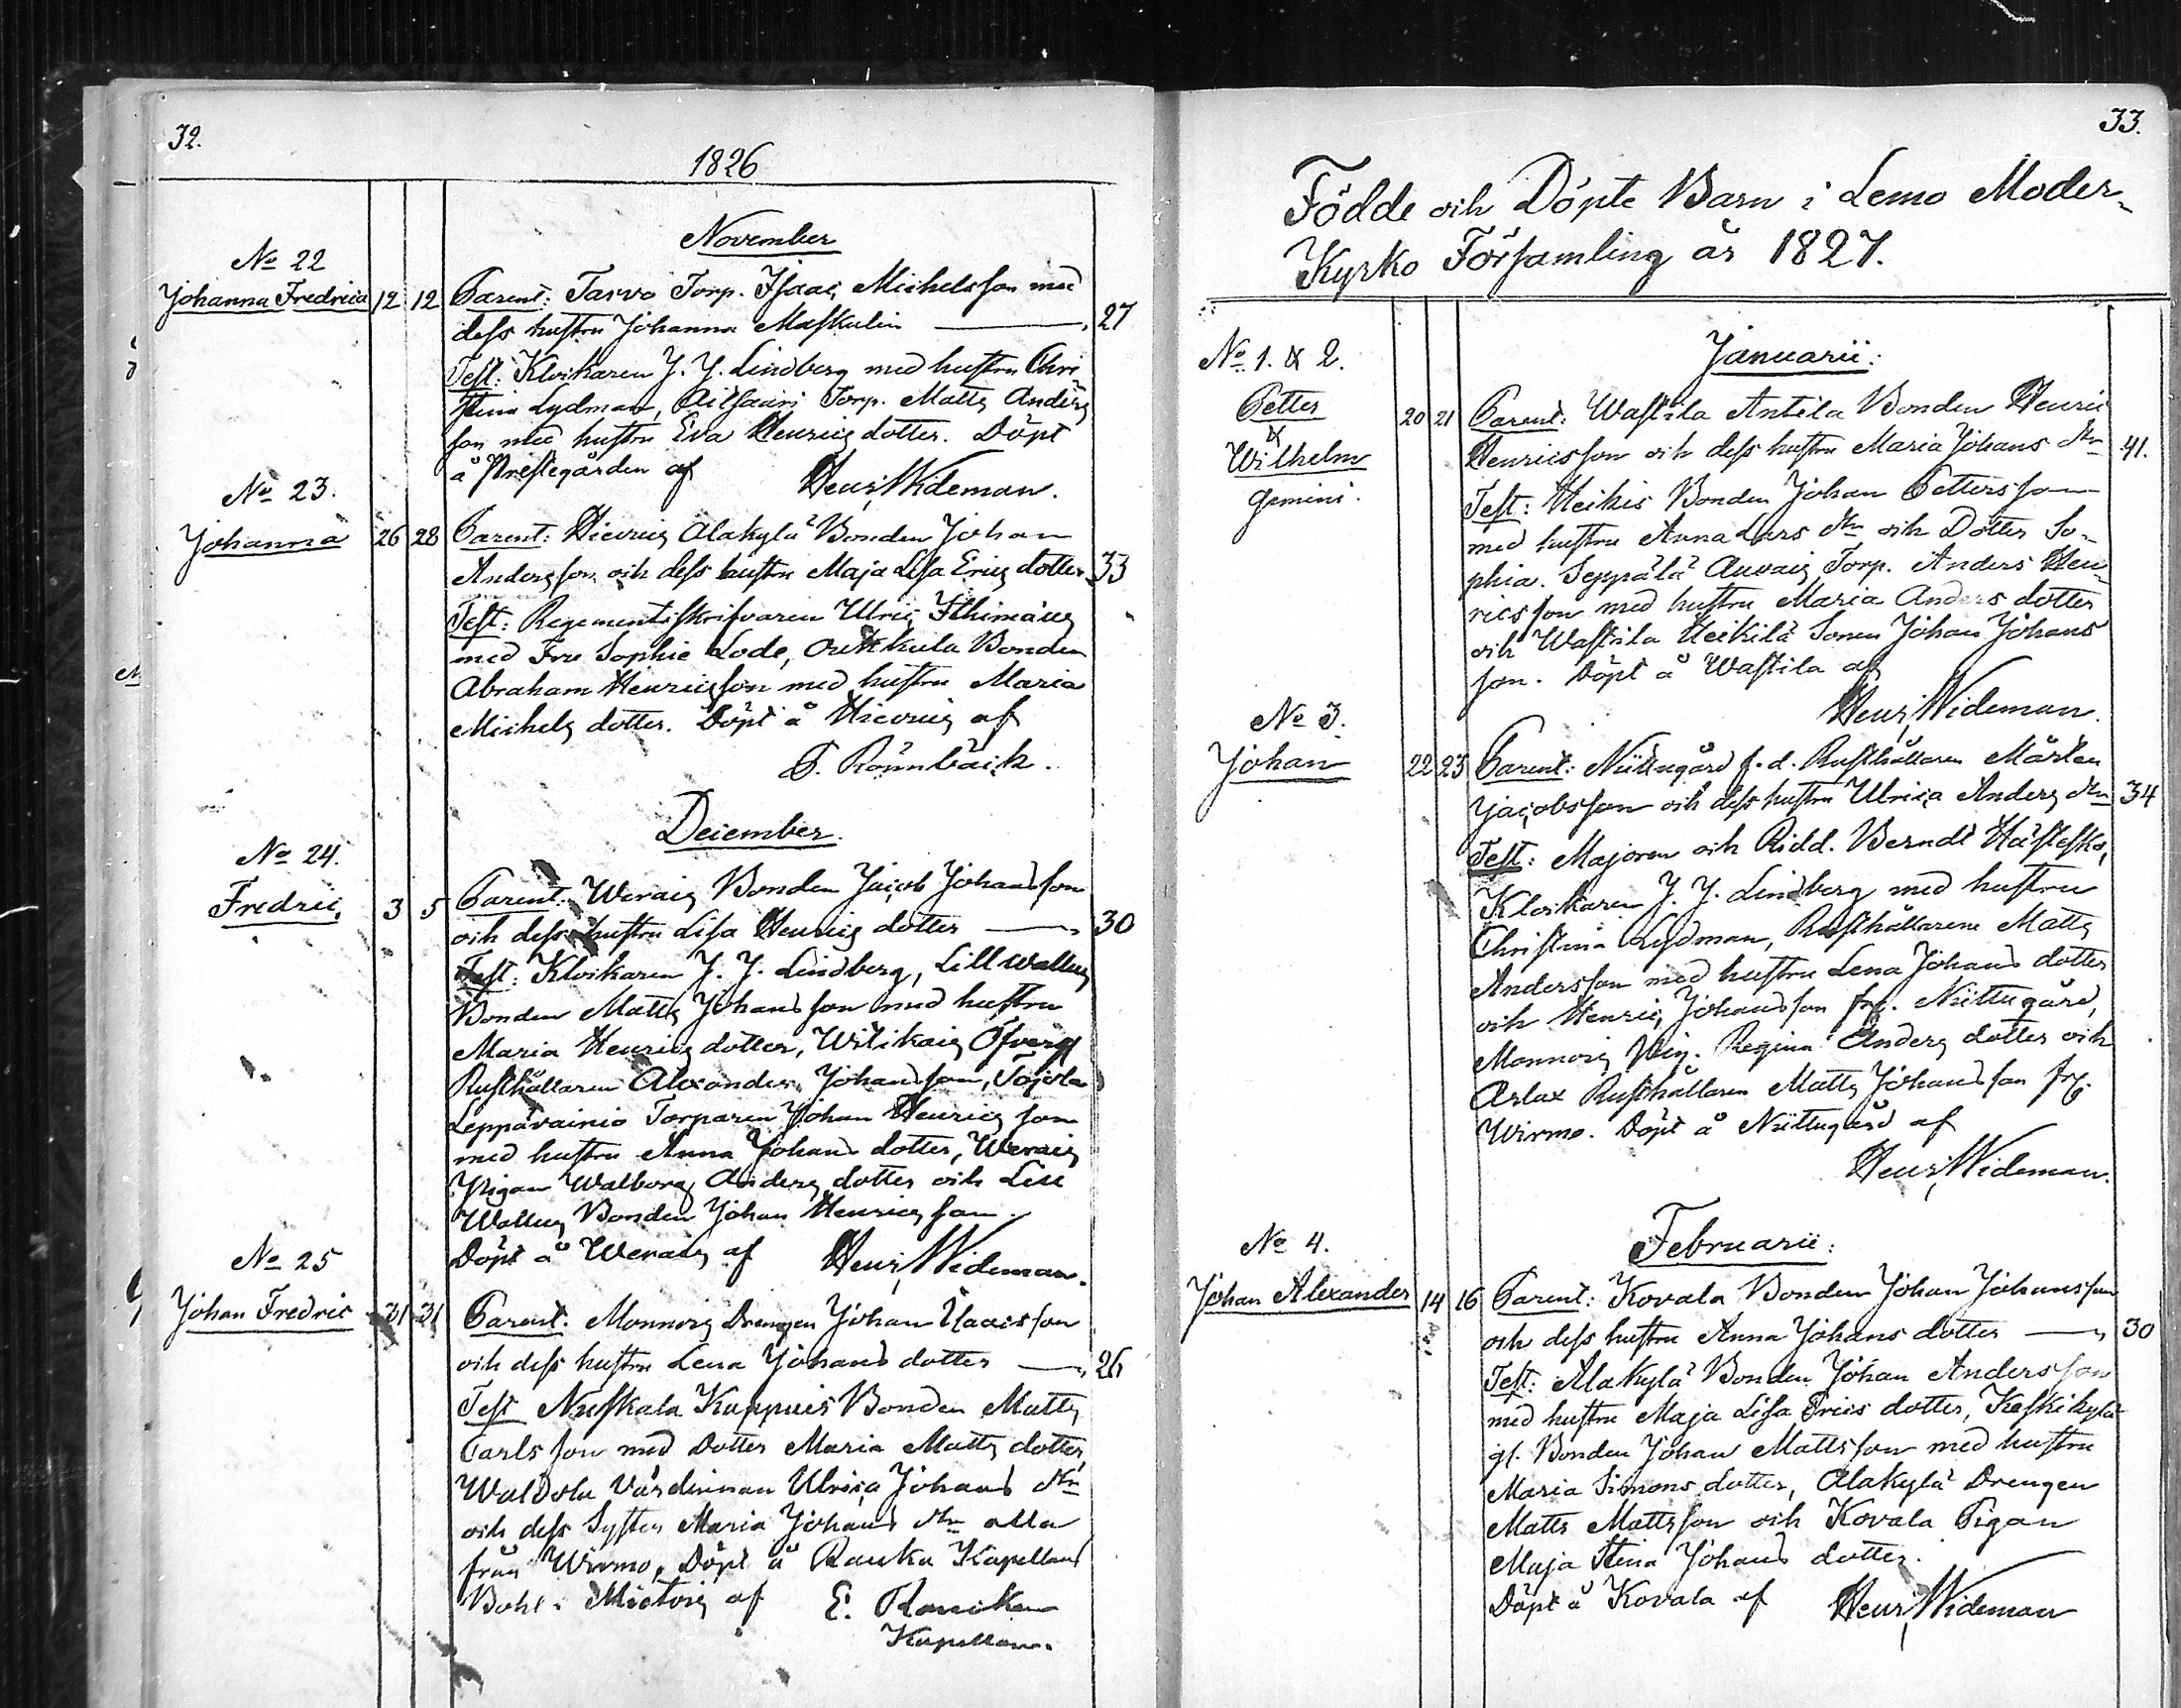 32.
1826
November
No 22
Johanna Fredrica 12 12 Parent: Tarvo Torp. Isaac Michelsson med
dess hustru Johanna Maskulin — 27
Test: Klockaren J. J. Lindberg med hustru Chri
stina Lydman, Torp. Matts Anders
son med hustru Eva Henrics dotter. Döpt
å Prestegården af Henr. Wideman.
No 23.
Johanna 26 28 Parent: Alakylä Bonden Johan
Andersson och dess hustru Maja Lisa Erics dotter 33
Test: Regementsskrifvaren Ulric
med Fru Sophie Lode, Bonden
Abraham Henricsson med hustru Maria
Michels dotter. Döpt å af
P. Rönnbäck.
December.
No 24.
Fredric, 3 5 Parent: Werais Bonden Jacob Johansson
och dess hustru Lisa Henrics dotter — 30
Test: Klockaren J. J. Lindberg, Lill Wallus
Bonden Matts Johansson med hustru
Maria Henrics dotter, Wilikais Öfvergd
Rusthållaren Alexander Johansson,
Leppävainio Torparen Johan Henrics son
med hustru Anna Johans dotter, Werais
Pigan Walborg Anders dotter och Lill
Wallus Bonden Johan Henrics son.
Döpt å Werais af Henr. Wideman.
No 25
Johan Fredric 31 31 Parent. Monnois Drengen Johan Isacsson
och dess hustru Lena Johans dotter — 26
Test Nuskala Bonden Matts
Carlsson med Dotter Maria Matts dotter,
Värdinnan Ulrica Johans dtr
och dess Syster Maria Johans dtr alla
från Wirmo, Döpt å Rauka Kapellans
Bohl i Mietois af E.
Kapellan.
33.
Födde och Döpte Barn i Lemo Moder-
Kyrko Församling år 1827.
Januarii:
No 1. & 2.
Petter
&
Wilhelm
gemini.
20 21 Parent: Wastila Antila Bonden Henric
Henricsson och dess hustru Maria Johans dtr 41.
Test: Heikis Bonden Johan Pettersson
med hustru Anna Lars dtr och Dotter So-
phia. Seppälä Auvais Torp. Anders Hen-
ricsson med hustru Maria Anders dotter
och Wastila Heikilä Sonen Johan Johans
son. Döpt å Wastila af
Henr. Wideman.
No 3.
Johan 22 23 Parent: Niittugård f.d. Rusthållaren Mårten
Jacobsson och dess hustru Ulrica Anders dtr 34
Test: Majoren och Ridd. Berndt Hästesko,
Klockaren J. J. Lindberg med hustru
Christina Lydman, Rusthållarene Matts
Andersson med hustru Lena Johans dotter
och Henric Johansson frn. Niittugård,
Monnois Pig. Regina Anders dotter och
Arlax Rusthållaren Matts Johansson frn.
Wirmo. Döpt å Niittugård af
Henr. Wideman.
Februarii:
No 4.
Johan Alexander 14 16 Parent: Kovala Bonden Johan Johansson
och dess hustru Anna Johans dotter — 30
Test: Alakylä Bonden Johan Andersson
med hustru Maja Lisa Erics dotter, Keskikylä
gl. Bonden Johan Mattsson med hustru
Maria Simons dotter, Alakylä Drengen
Matts Mattsson och Kovala Pigan
Maja Stina Johans dotter.
Döpt å Kovala af Henr. Wideman